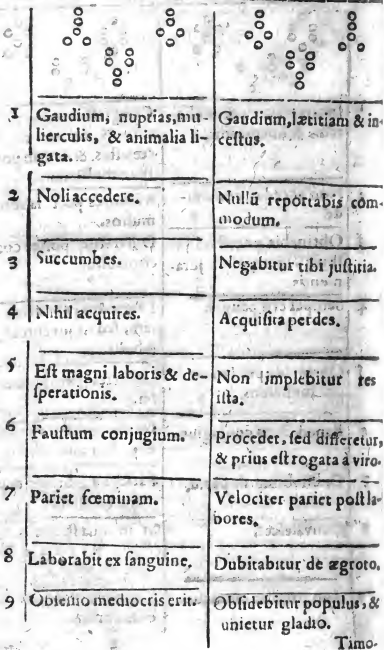 1
Gaudium, nuptias, mu-
lierculis, & animalia li-
gata.
Gaudium, lætitiam & in-
ceſtus.
2
Noli accedere.
Nullũ reportabis com-
modum.
3
Succumbes.
Negabitur tibi juſtitia.
4
Nihil acquires.
Acquiſita perdes.
5
Eſt magni laboris & de-
ſperationis.
Non implebitur res
iſta.
6
Fauſtum conjugium.
Procedet, ſed differetur,
& prius eſt rogata à viro.
7
Pariet fœminam.
Velociter pariet poſt la-
bores.
8
Laborabit ex ſanguine.
Dubitabitur de ægroto.
9
mediocris erit.
Obſidebitur populus, &
unietur gladio.
Timo-